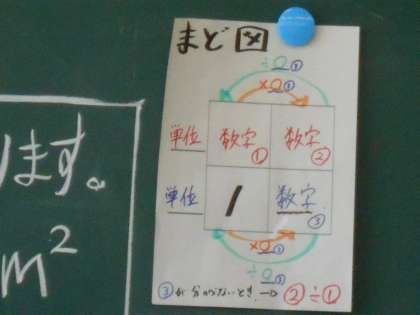 まど図
÷□③
×□③
単位 数字① 数字②
単位 1 数字③
×□③
÷□③
③が分からないとき→②÷①
ます。
m²